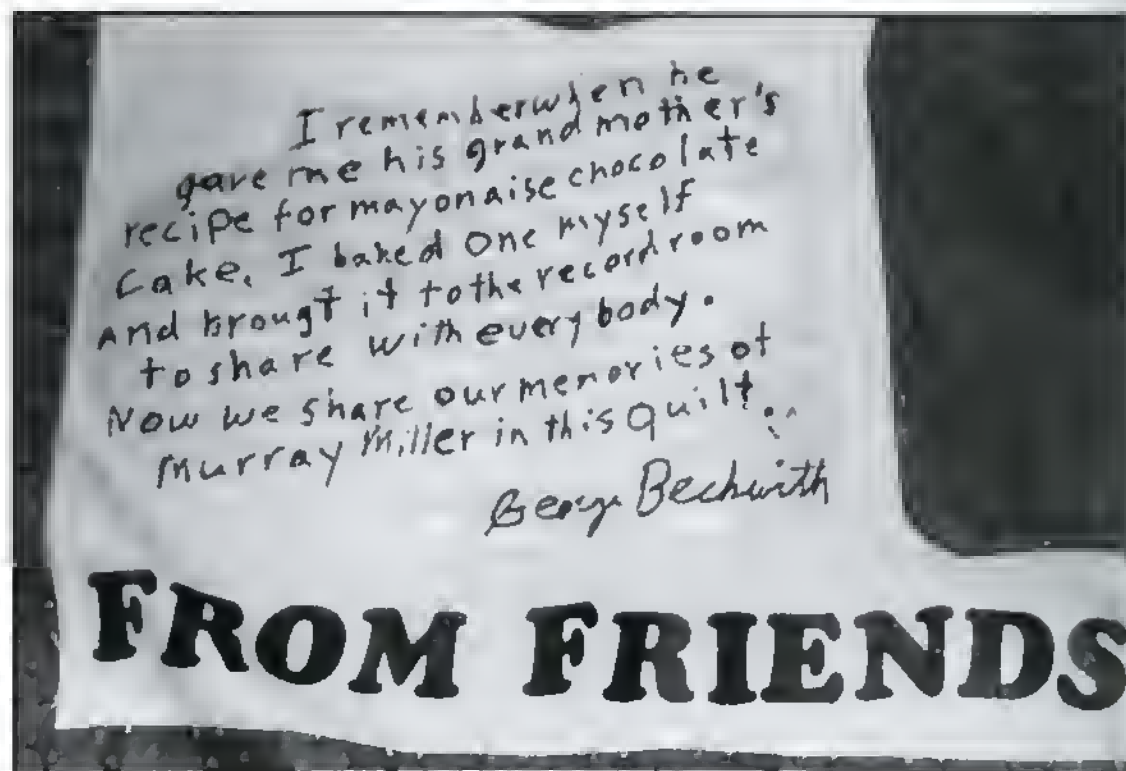 I remember when he
gave me his grandmother's
recipe for mayonaise chocolate
Cake. I baked one myself
And brougt it to the record room
to share with everybody.
Now we share our memories of
Murray Miller in this quilt.
George Beckwith
FROM FRIENDS